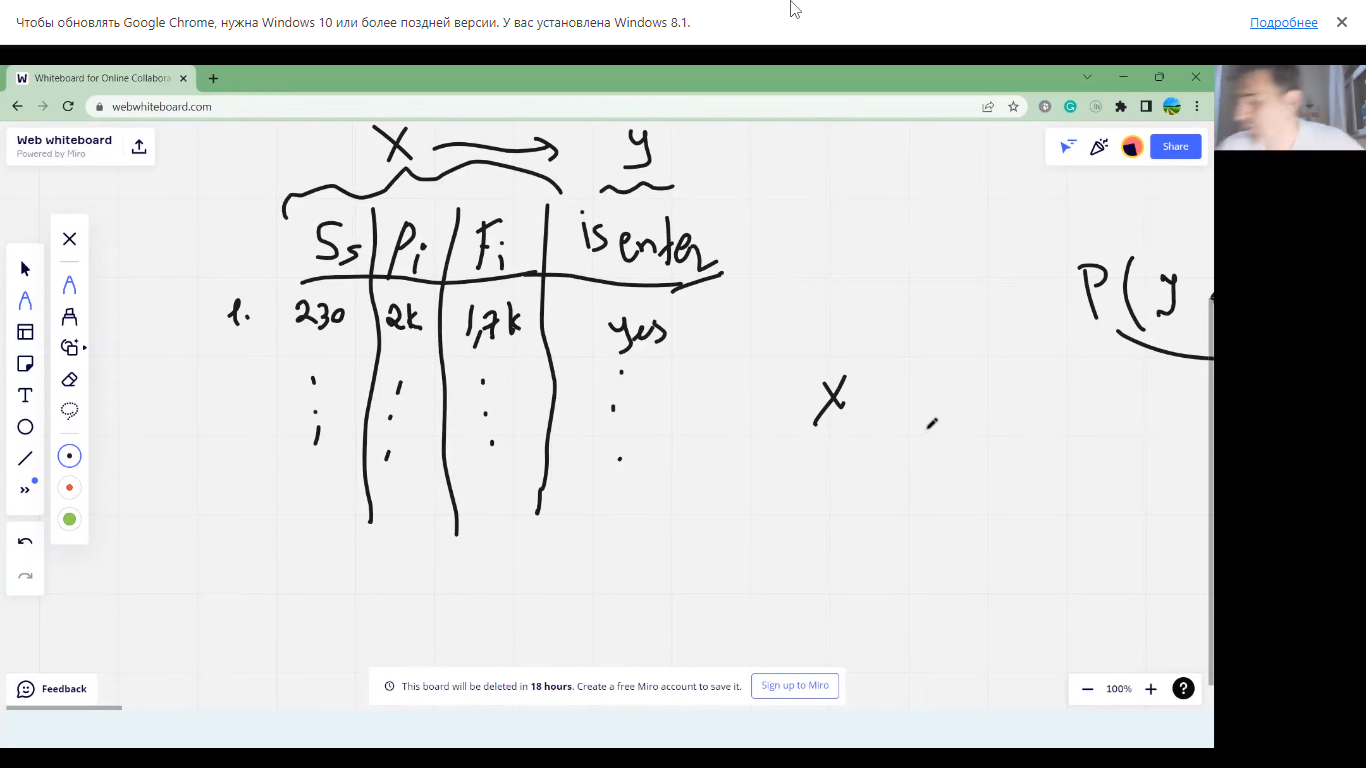 Чтобы обновлять Google Chrome, нужна Windows 10 или более поздней версии. У вас установлена Windows 8.1.
Подробнее
Whiteboard for Online Collabora
webwhiteboard.com
Web whiteboard
Powered by Miro
Share
X → y
Ss Pi Fi is enter
1. 230 2k 1,7k yes
P(y
X
T
Feedback
This board will be deleted in 18 hours. Create a free Miro account to save it.
Sign up to Miro
100%
?